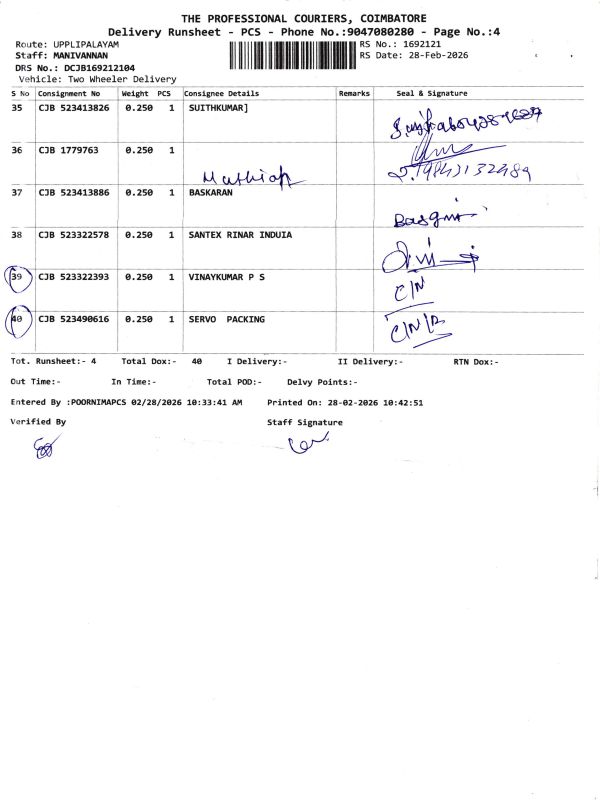 THE PROFESSIONAL COURIERS, COIMBATORE
Delivery Runsheet - PCS - Phone No.:9047080280 - Page No.:4
Route: UPPLIPALAYAM
Staff: MANIVANNAN
DRS No.: DCJB169212104
Vehicle: Two Wheeler Delivery
RS No.: 1692121
RS Date: 28-Feb-2026
S No Consignment No Weight PCS Consignee Details Remarks Seal & Signature
35 CJB 523413826 0.250 1 SUITHKUMAR]
36 CJB 1779763 0.250 1
37 CJB 523413886 0.250 1 BASKARAN
38 CJB 523322578 0.250 1 SANTEX RINAR INDUIA
39 CJB 523322393 0.250 1 VINAYKUMAR P S C/N
40 CJB 523490616 0.250 1 SERVO PACKING
Tot. Runsheet:- 4 Total Dox:- 40 I Delivery:- II Delivery:- RTN Dox:-
Out Time:- In Time:- Total POD:- Delvy Points:-
Entered By :POORNIMAPCS 02/28/2026 10:33:41 AM Printed On: 28-02-2026 10:42:51
Verified By Staff Signature